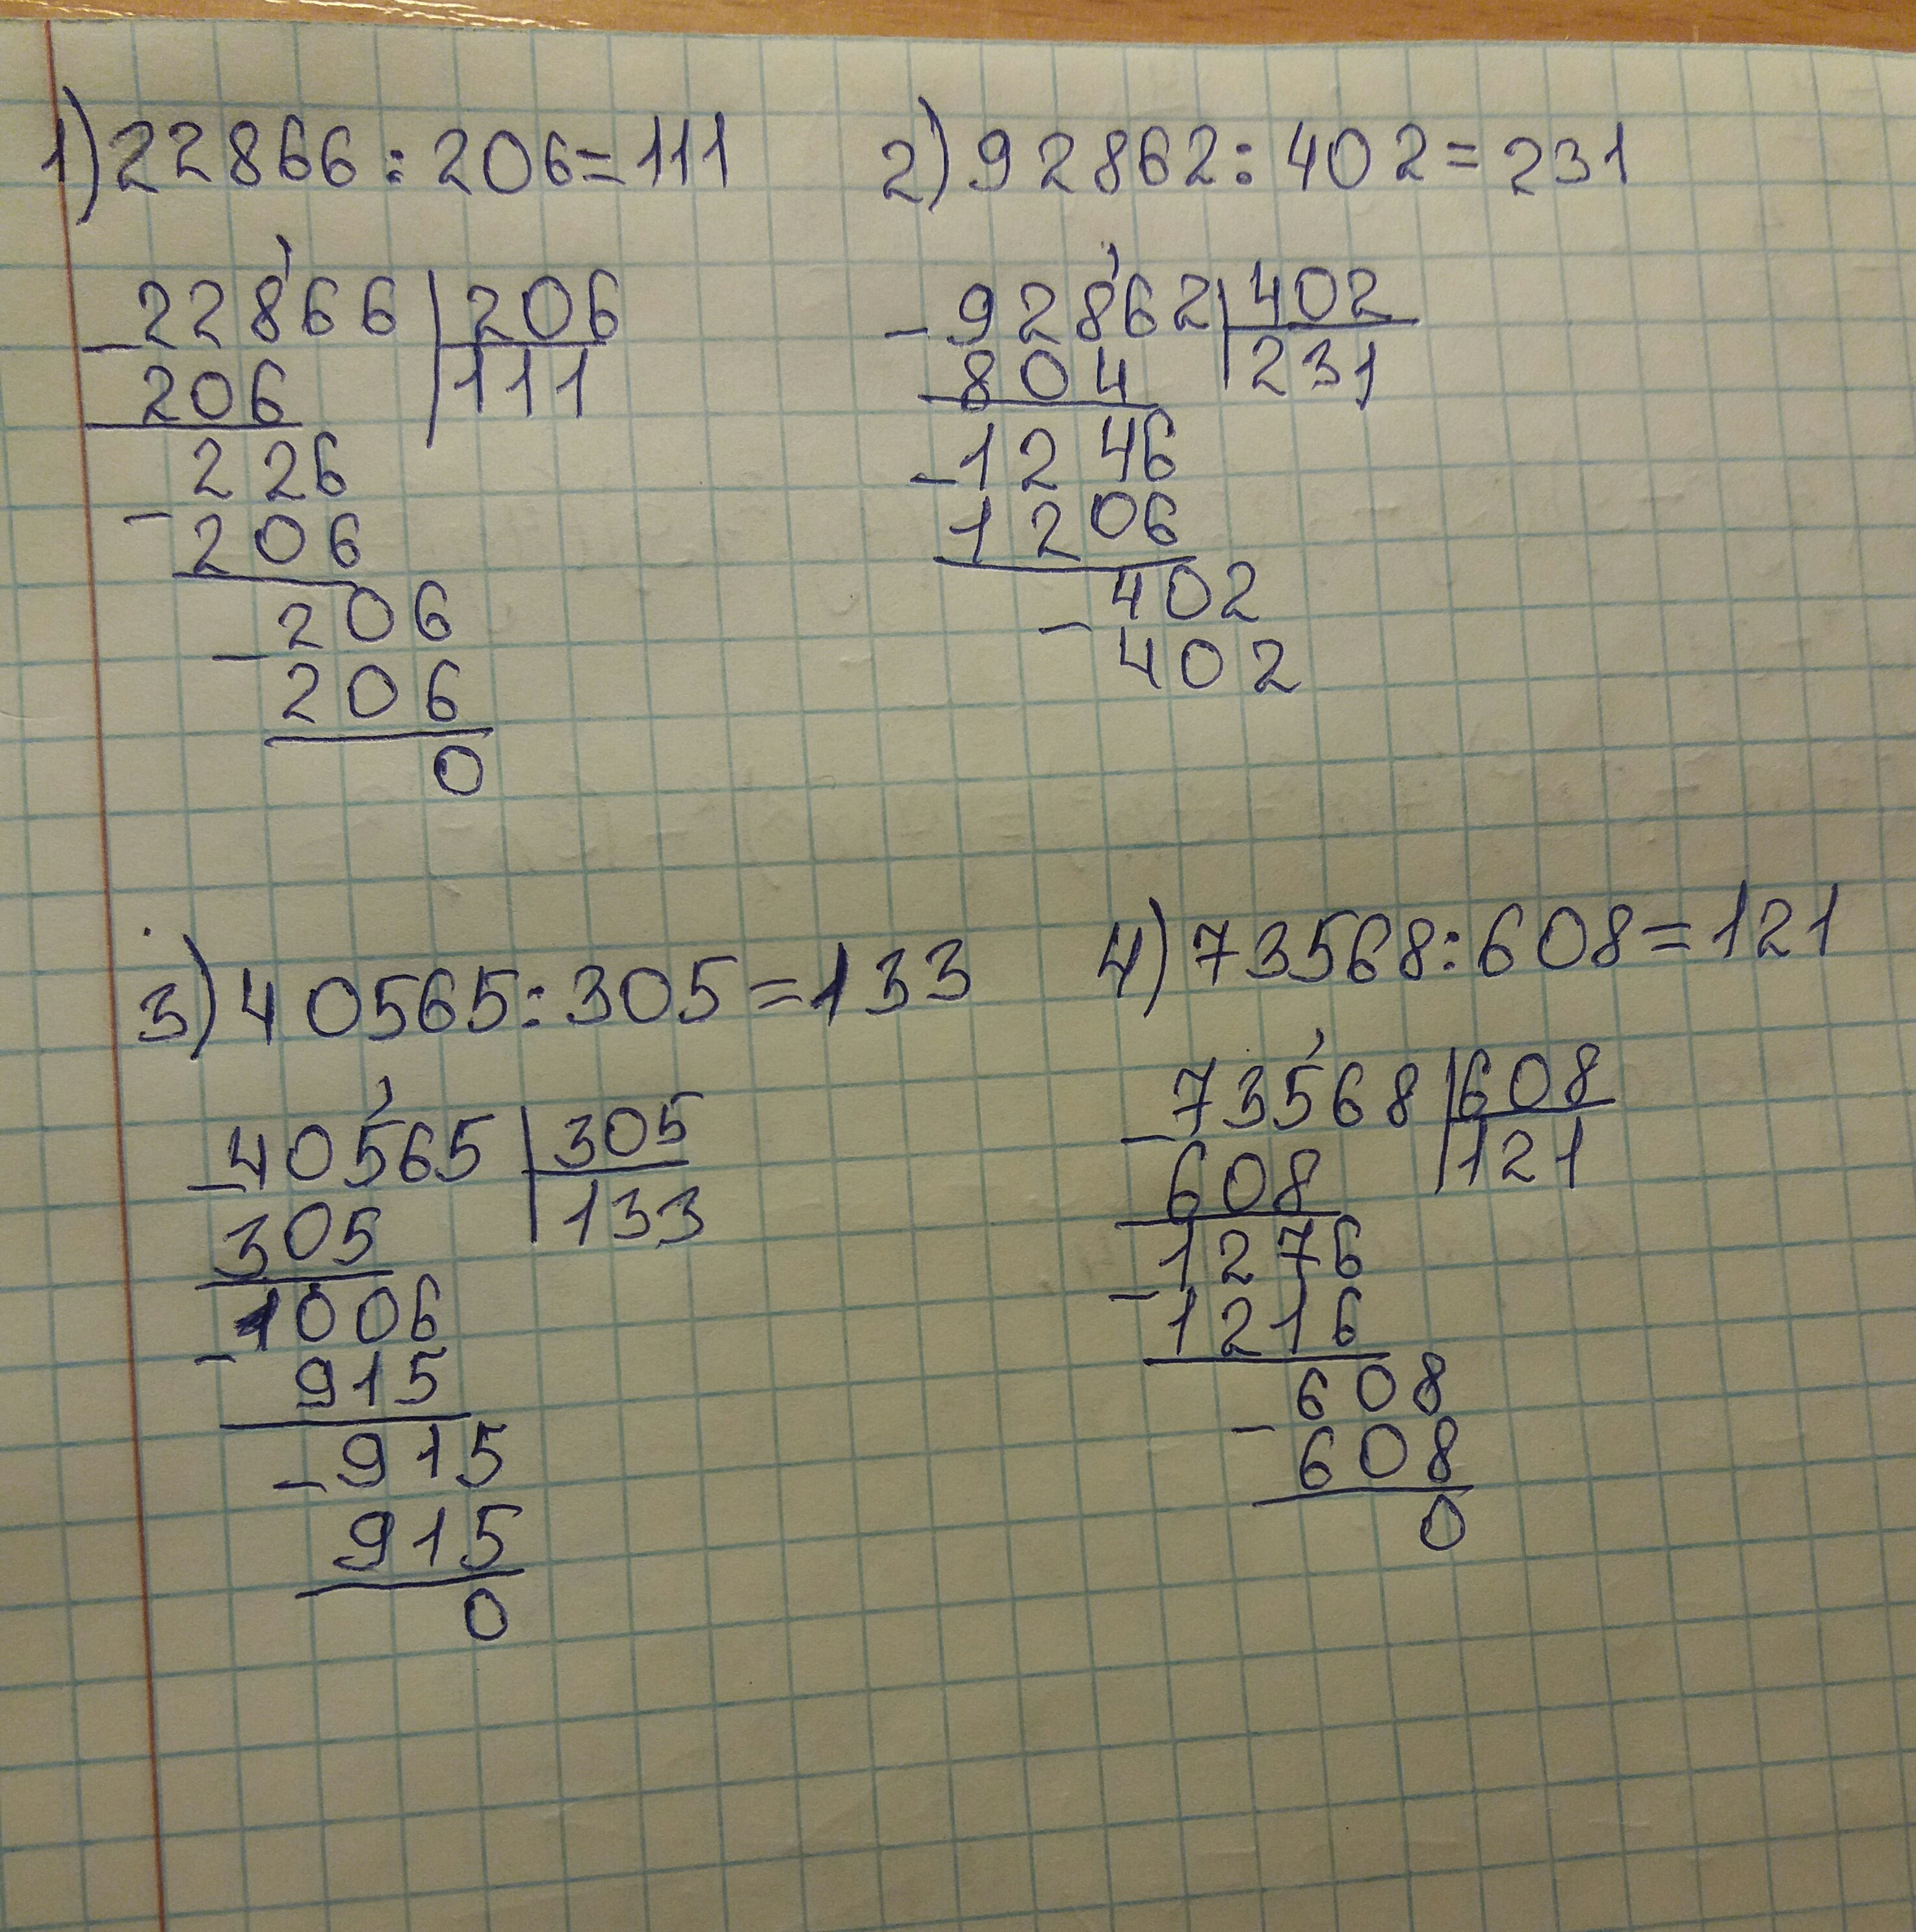 1) 22866 : 206 = 111
22866 | 206
206 | 111
226
206
206
206
0
2) 92862 : 402 = 231
92862 | 402
804 | 231
1246
1206
402
402
3) 40565 : 305 = 133
40565 | 305
305 | 133
1006
915
915
915
0
4) 73568 : 608 = 121
73568 | 608
608 | 121
1276
1216
608
608
0